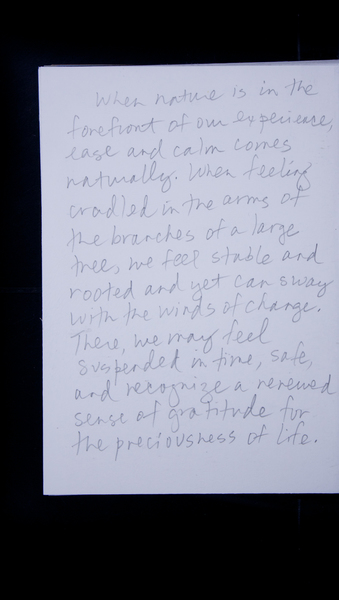 When nature is in the
forefront of our experience,
ease and calm comes
naturally. When feeling
cradled in the arms of
the branches of a large
tree, we feel stable and
rooted and yet can sway
with the winds of change.
There, we may feel
suspended in time, safe,
and recognize a renewed
sense of gratitude for
the preciousness of life.